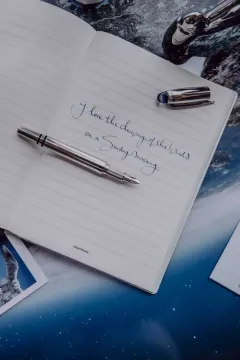 I love the changing of the World
on a Sunday morning.